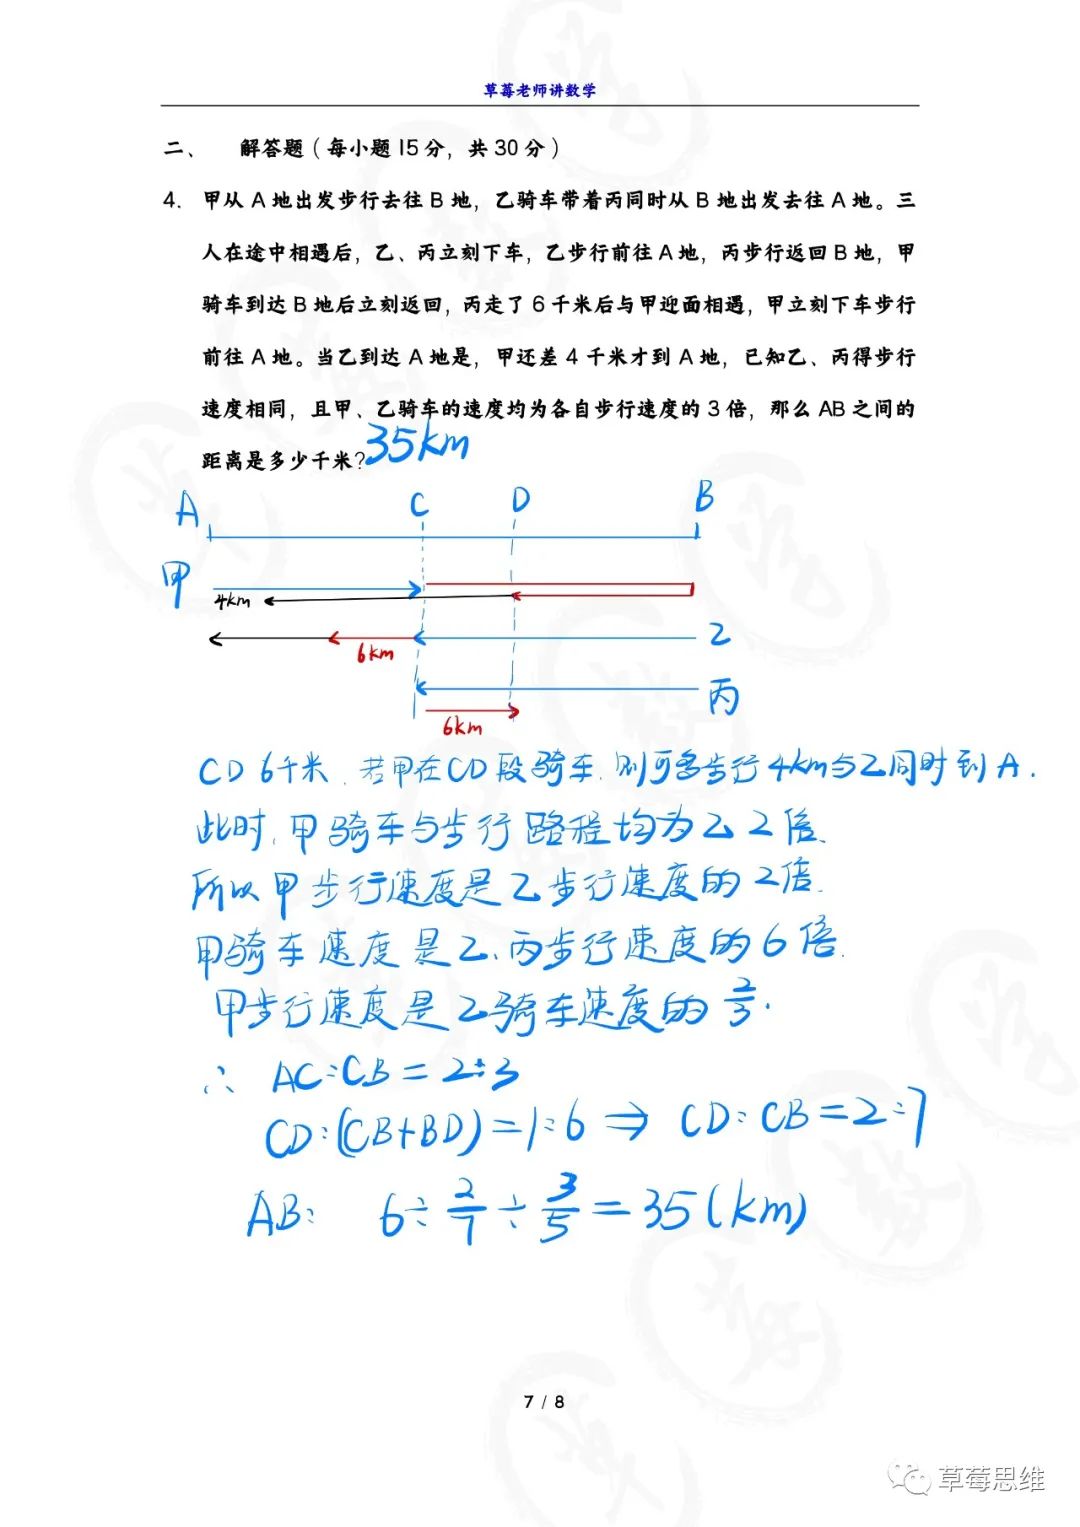 草莓老师讲数学
二、 解答题（每小题15分，共30分）
4. 甲从A地出发步行去往B地，乙骑车带着丙同时从B地出发去往A地。三
人在途中相遇后，乙、丙立刻下车，乙步行前往A地，丙步行返回B地，甲
骑车到达B地后立刻返回，丙走了6千米后与甲迎面相遇，甲立刻下车步行
前往A地。当乙到达A地是，甲还差4千米才到A地，已知乙、丙得步行
速度相同，且甲、乙骑车的速度均为各自步行速度的3倍，那么AB之间的
距离是多少千米？35km
A C D B
甲
4km
乙
6km
丙
6km
CD 6千米．若甲在CD段骑车，则可多步行4km与乙同时到A.
此时，甲骑车与步行路程均为乙2倍.
所以甲步行速度是乙步行速度的2倍.
甲骑车速度是乙、丙步行速度的6倍.
甲步行速度是乙骑车速度的2/3.
∴ AC:CB=2:3
CD:(CB+BD)=1:6 ⇒ CD:CB=2:7
AB: 6÷2/7÷3/5=35(km)
7 / 8
草莓思维